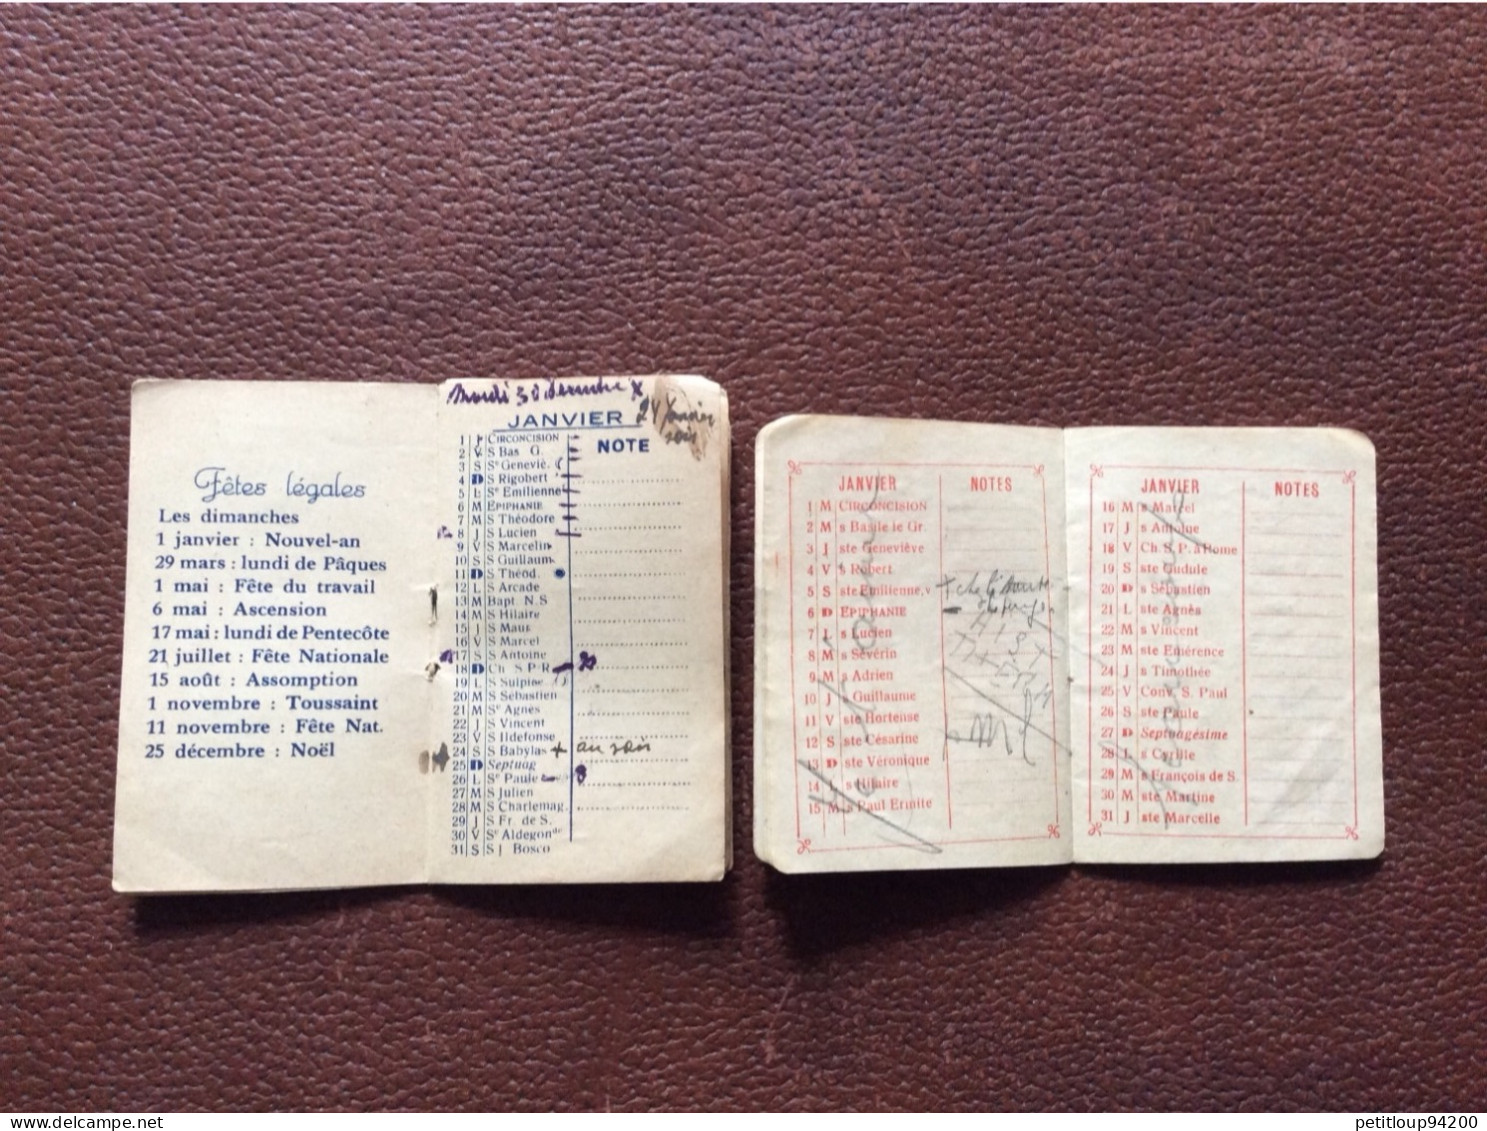 Fêtes légales
Les dimanches
1 janvier : Nouvel-an
29 mars : lundi de Pâques
1 mai : Fête du travail
6 mai : Ascension
17 mai : lundi de Pentecôte
21 juillet : Fête Nationale
15 août : Assomption
1 novembre : Toussaint
11 novembre : Fête Nat.
25 décembre : Noël
JANVIER
NOTE
1 J CIRCONCISION
2 V S Bas G.
3 S Sᵉ Geneviè.
4 D S Rigobert
5 L Sᵉ Emilienne
6 M EPIPHANIE
7 M S Théodore
8 J S Lucien
9 V S Marcelin
10 S S Guillaum
11 D S Théod.
12 L S Arcade
13 M Bapt N.S
14 M S Hilaire
15 J S Maus
16 V S Marcel
17 S S Antoine
18 D Ch S.P.R
19 L S Sulpine
20 M S Sébastien
21 M Sᵉ Agnès
22 J S Vincent
23 V S Ildefonse
24 S S Babylas + au soir
25 D Septuag
26 L Sᵉ Paule
27 M S Julien
28 M S Charlemag.
29 J S Fr. de S.
30 V Sᵉ Aldegonᵈᵉ
31 S S J Bosco
JANVIER NOTES
1 M CIRCONCISION
2 M s Basile le Gr.
3 J ste Geneviève
4 V s Robert
5 S ste Emilienne, v
6 D EPIPHANIE
7 L s Lucien
8 M s Séverin
9 M s Adrien
10 J s Guillaume
11 V ste Hortense
12 S ste Césarine
13 D ste Véronique
14 L s Hilaire
15 M s Paul Ermite
JANVIER NOTES
16 M s Marcel
17 J s Antoine
18 V Ch. S. P. à Rome
19 S ste Gudule
20 D s Sébastien
21 L ste Agnès
22 M s Vincent
23 M ste Emérence
24 J s Timothée
25 V Conv. S. Paul
26 S ste Paule
27 D Septuagésime
28 L s Cyrille
29 M s François de S.
30 M ste Martine
31 J ste Marcelle
petitloup94200